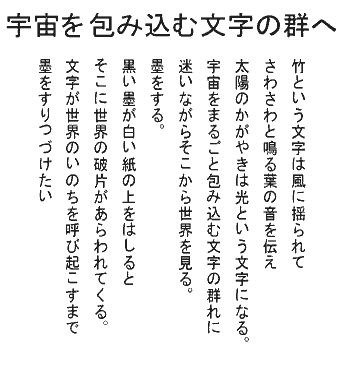 宇宙を包み込む文字の群へ
竹という文字は風に揺られて
さわさわと鳴る葉の音を伝え
太陽のかがやきは光という文字になる。
宇宙をまるごと包み込む文字の群れに
迷いながらそこから世界を見る。
墨をする。
黒い墨が白い紙の上をはしると
そこに世界の破片があらわれてくる。
文字が世界のいのちを呼び起こすまで
墨をすりつづけたい